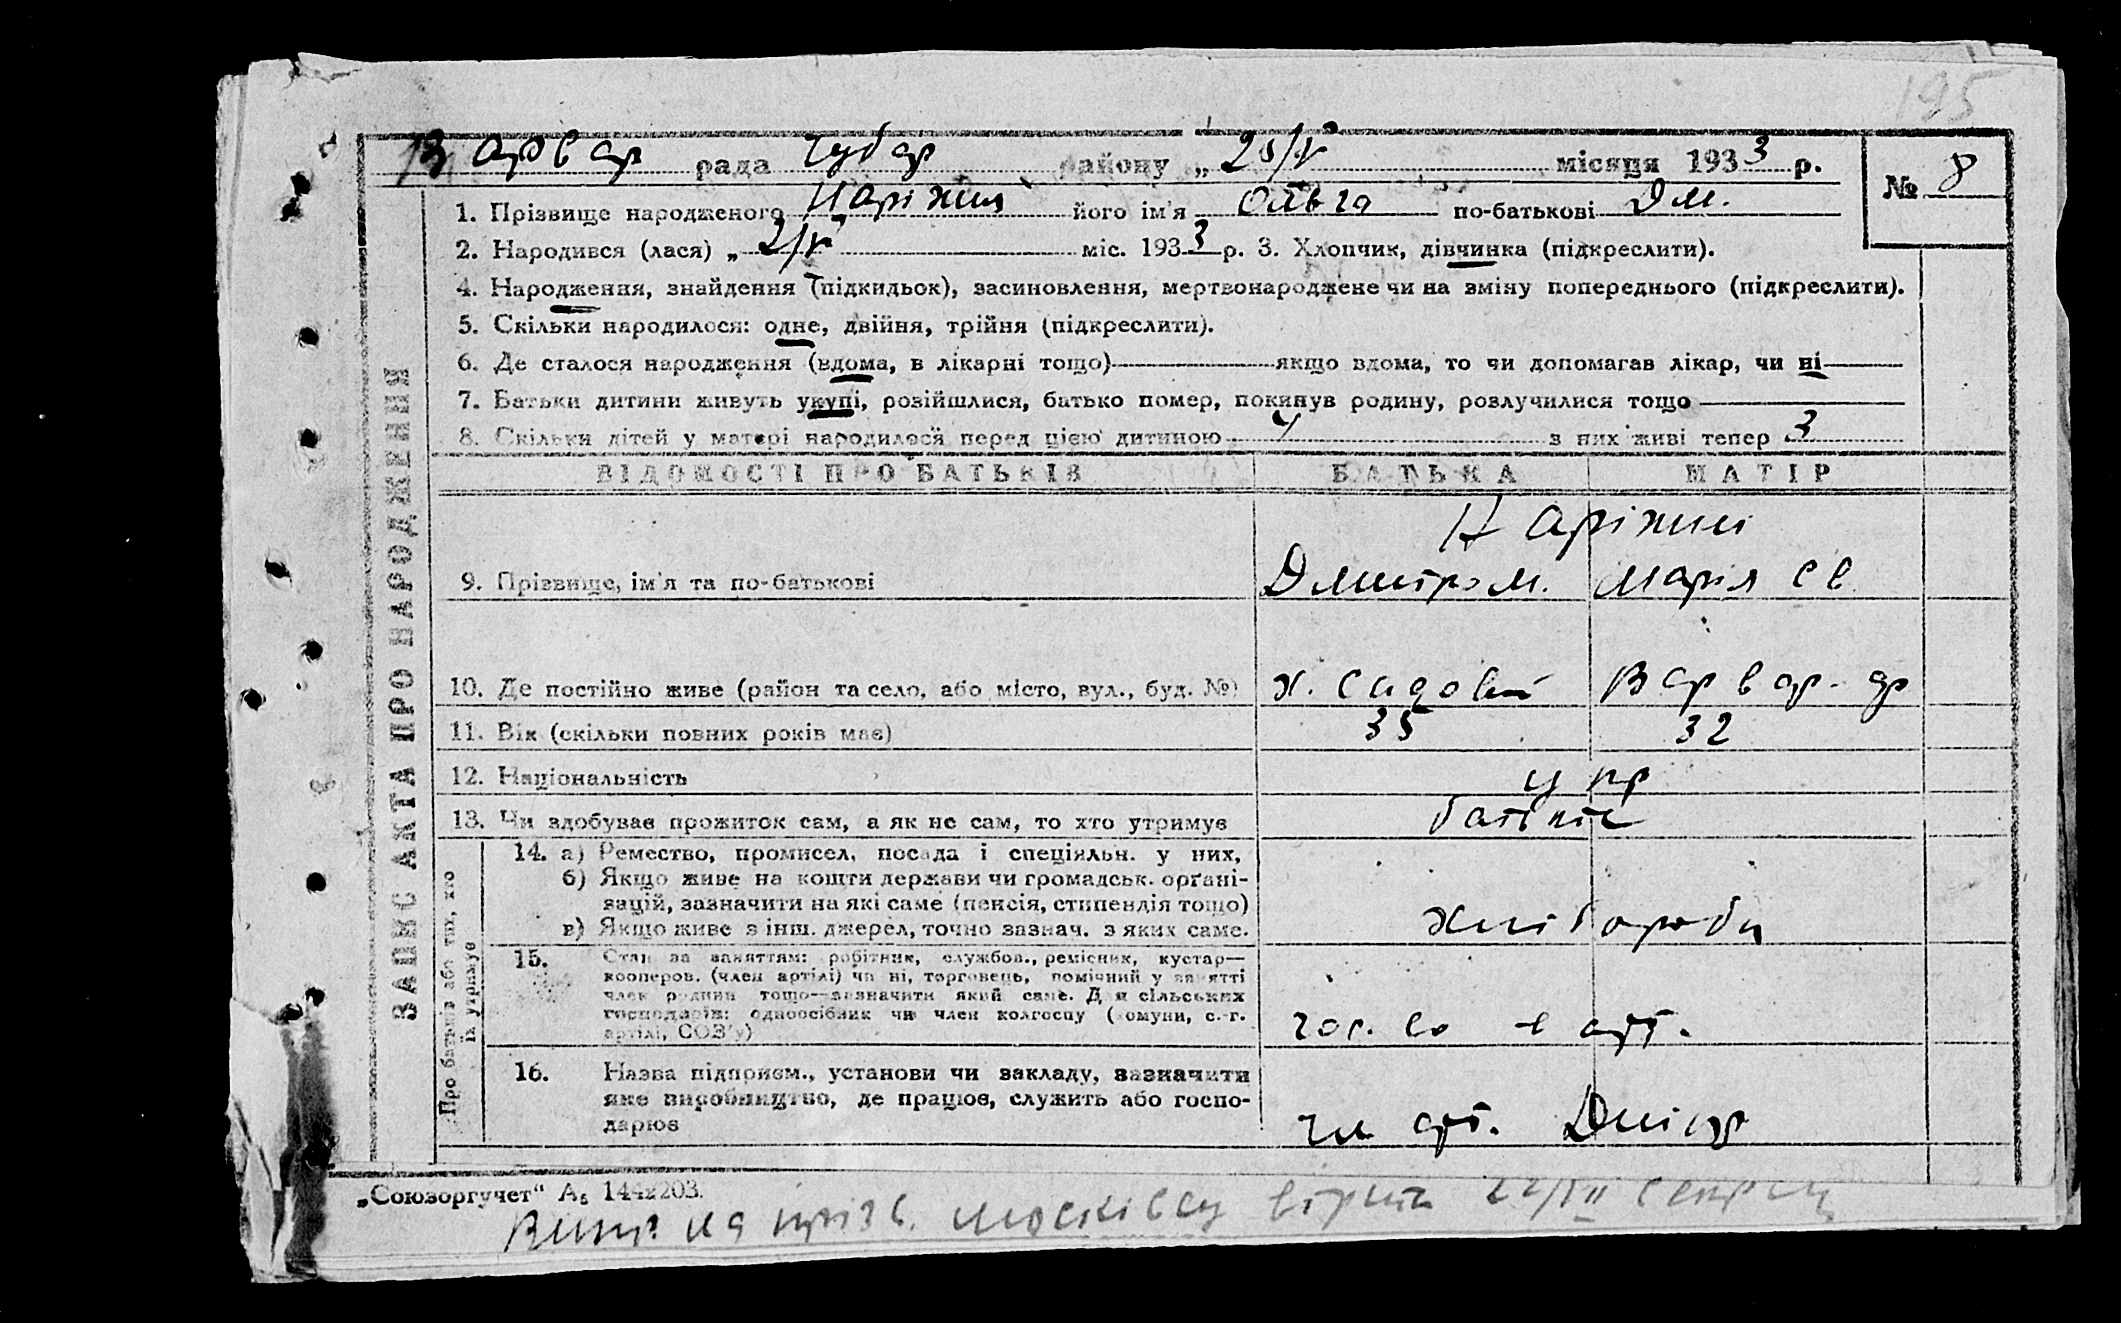 195
Варвар рада Чубар району „25/V місяця 1933 р. № 8
1. Прізвище народженого Наріжна його ім'я Ольга по-батькові Дм.
2. Народився (лася) „ 2/V міс. 1933 р. 3. Хлопчик, дівчинка (підкреслити).
4. Народження, знайдення (підкидьок), засиновлення, мертвонароджене чи на зміну попереднього (підкреслити).
5. Скільки народилося: одне, двійня, трійня (підкреслити).
6. Де сталося народження (вдома, в лікарні тощо) якщо вдома, то чи допомагав лікар, чи ні
7. Батьки дитини живуть укупі, розійшлися, батько помер, покинув родину, розлучилися тощо
8. Скільки дітей у матері народилося перед цією дитиною 4 з них живі тепер 3
ВІДОМОСТІ ПРО БАТЬКІВ БАТЬКА МАТІР
Наріжні
9. Прізвище, ім'я та по-батькові Дмитро М. Марія Єв
10. Де постійно живе (район та село, або місто, вул., буд. №) х. Садовий Варвар.
11. Вік (скільки повних років має) 35 32
12. Національність укр
13. Чи здобуває прожиток сам, а як не сам, то хто утримує батьки
ЗАПИС АКТА ПРО НАРОДЖЕННЯ
Про батьків або тих, хто їх утримує
14. а) Ремество, промисел, посада і спеціяльн. у них,
б) Якщо живе на кошти держави чи громадськ. орґані-
зацій, зазначити на які саме (пенсія, стипендія тощо)
в) Якщо живе з інш. джерел, точно зазнач. з яких саме. хлібороби
15. Стан за заняттям: робітник, службов., ремісник, кустар—
кооперов. (член артілі) чи ні, торговець, помічний у занятті
член родини тощо—зазначити який саме. Для сільських
господарів: одноосібник чи член колгоспу (комуни, с.-г.
артілі, СОЗ'у) гос. в арт.
16. Назва підприєм., установи чи закладу, зазначити
яке виробництво, де працює, служить або госпо-
дарює чл арт. Дніпр
„Союзоргучет“ А₅ 144х203.
на прізв.